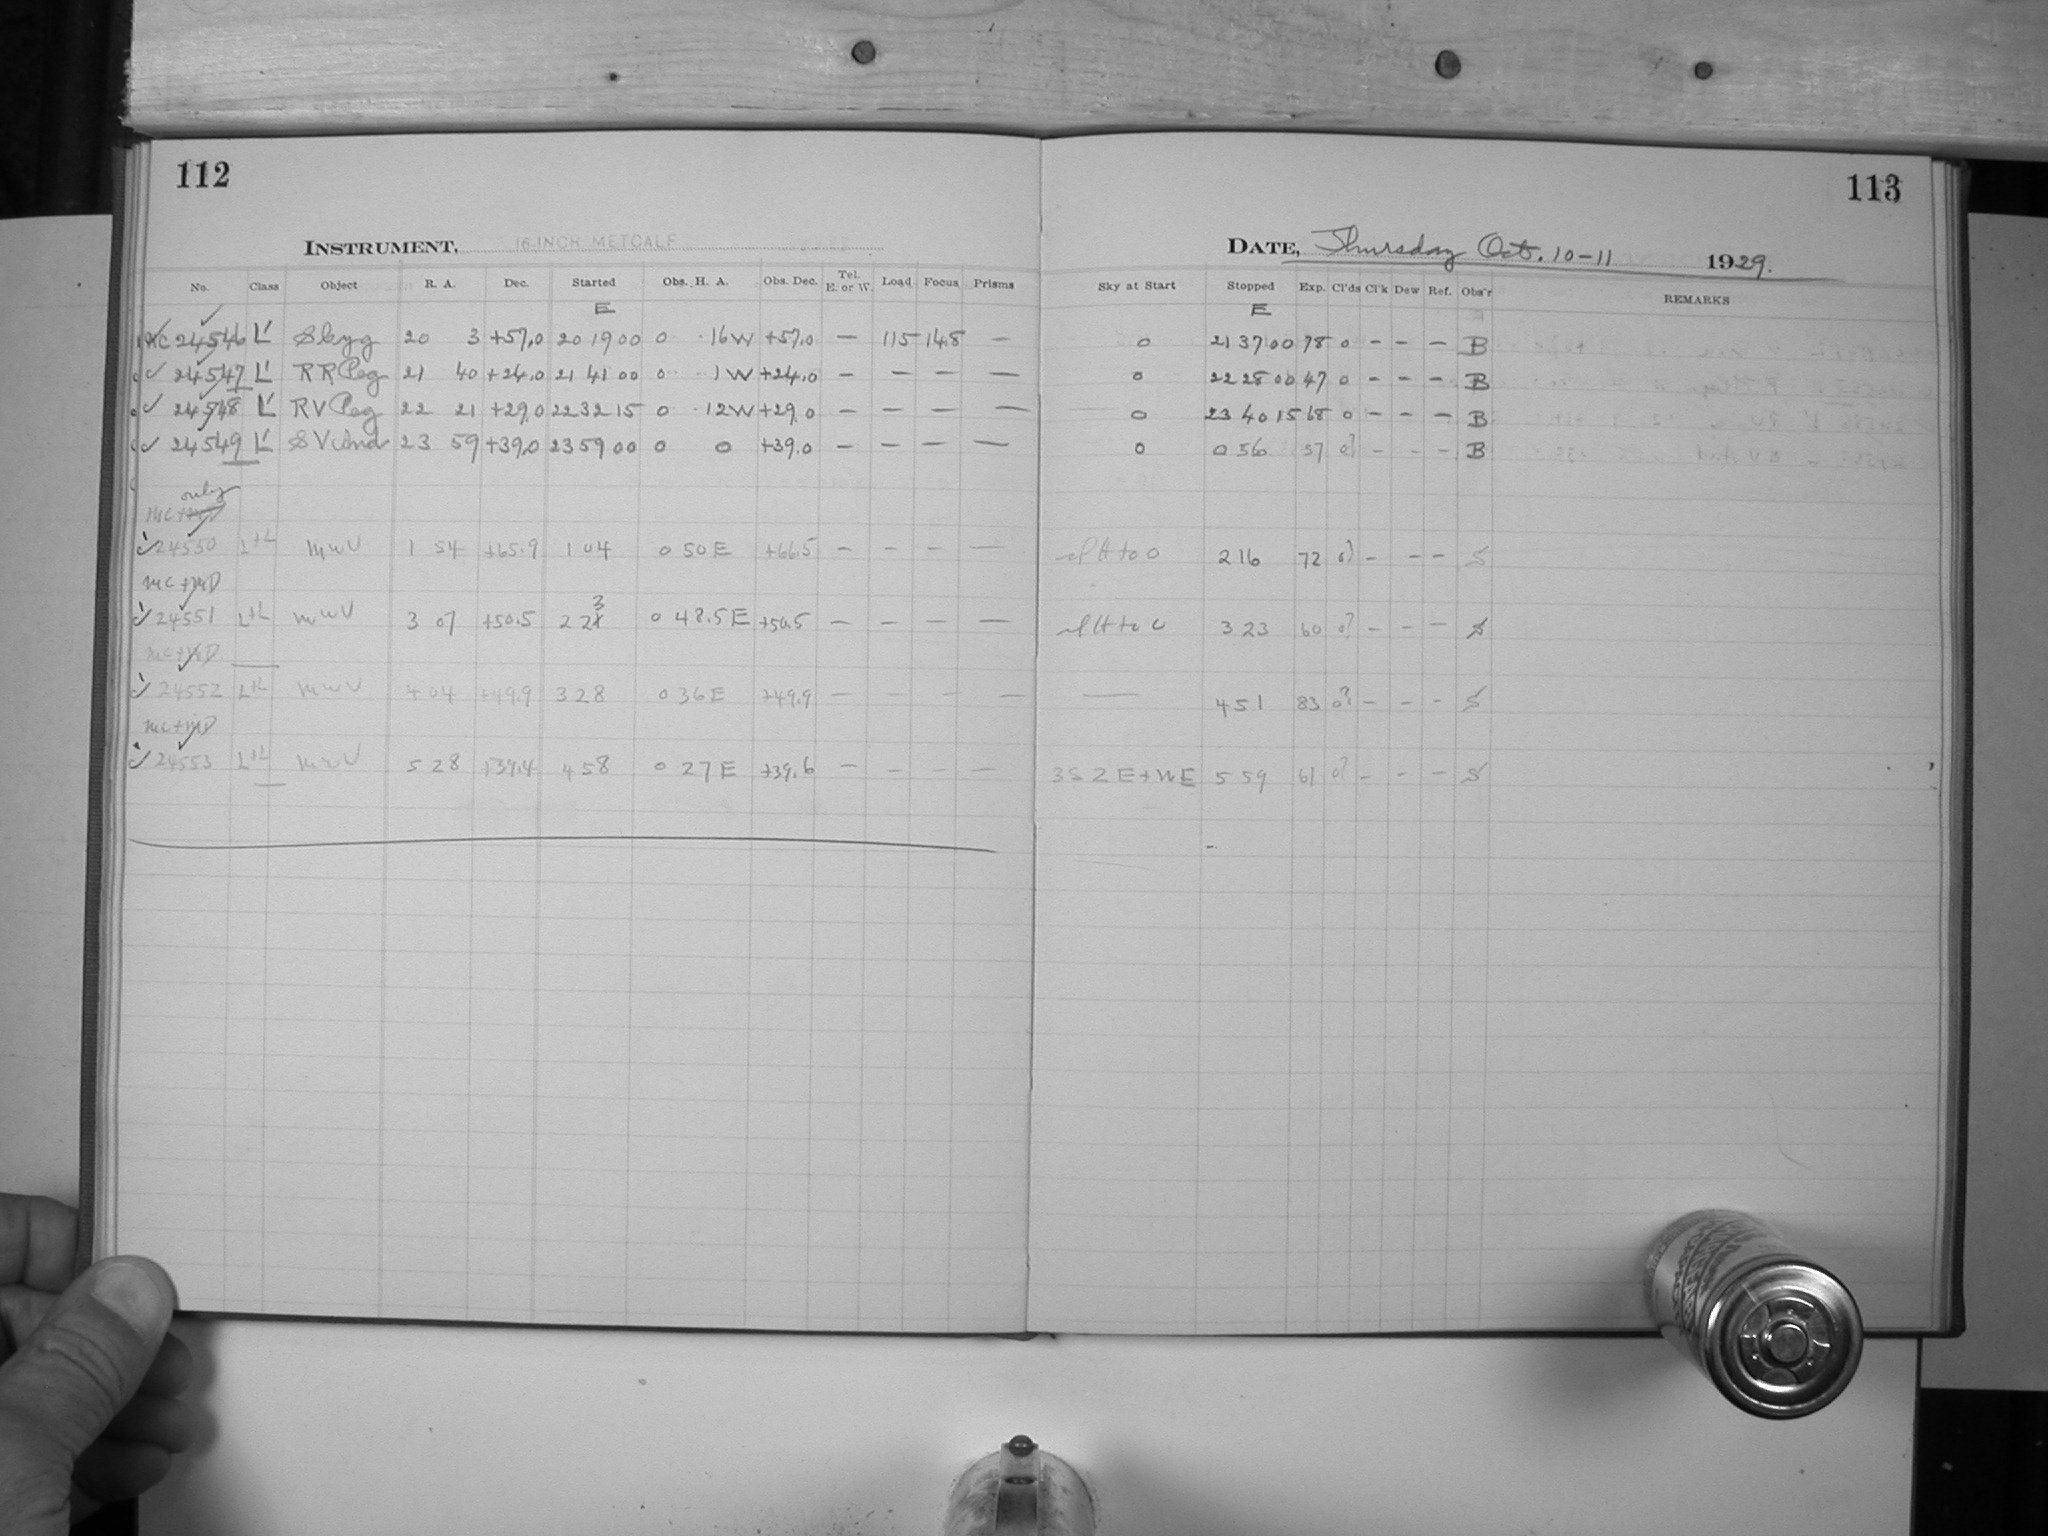 112
INSTRUMENT, 16-INCH METCALF
No. Class Object R. A. Dec. Started Obs. H. A. Obs. Dec. Tel. E. or W. Load Focus Prisms
E
MC 24546 L' S Cyg 20 3 +57.0 20 19 00 0 16 W +57.0 — 115 14.8 —
24547 L' RR Peg 21 40 +24.0 21 41 00 0 1 W +24.0 — — — —
24548 L' RV Peg 22 21 +29.0 22 32 15 0 12 W +29.0 — — — —
24549 L' SV And 23 59 +39.0 23 59 00 0 0 +39.0 — — — —
only
MC +
24550 L+L MWV 1 54 +65.9 1 04 0 50 E +66.5 — — — —
MC + MD
24551 L+L MWV 3 07 +50.5 2 23 0 48.5 E +50.5 — — — —
MC + MD
24552 L+L MWV 4 04 +49.9 3 28 0 36 E +49.9 — — — —
MC + MD
24553 L+L MWV 5 28 +39.4 4 58 0 27 E +39.6 — — — —
113
DATE, Thursday Oct. 10-11 1929.
Sky at Start Stopped Exp. Cl'ds Cl'k Dew Ref. Obs'r REMARKS
E
0 21 37 00 78 0 - - - B
0 22 28 00 47 0 - - - B
0 23 40 15 68 0 - - - B
0 0 56 57 0? - - - B
to 0 2 16 72 0? - - - S
to 0 3 23 60 0? - - - S
— 4 51 83 0? - - - S
3S Z E + NE 5 59 61 0? - - - S